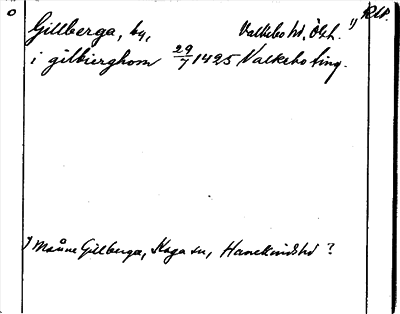 Gillberga, by, Valkebo hd, Östh. 1) RLb.
i gilbierghom 29/7 1425 Valkebo ting.
1) Månne Gillberga, Kaga sn, Hanekinds hd ?